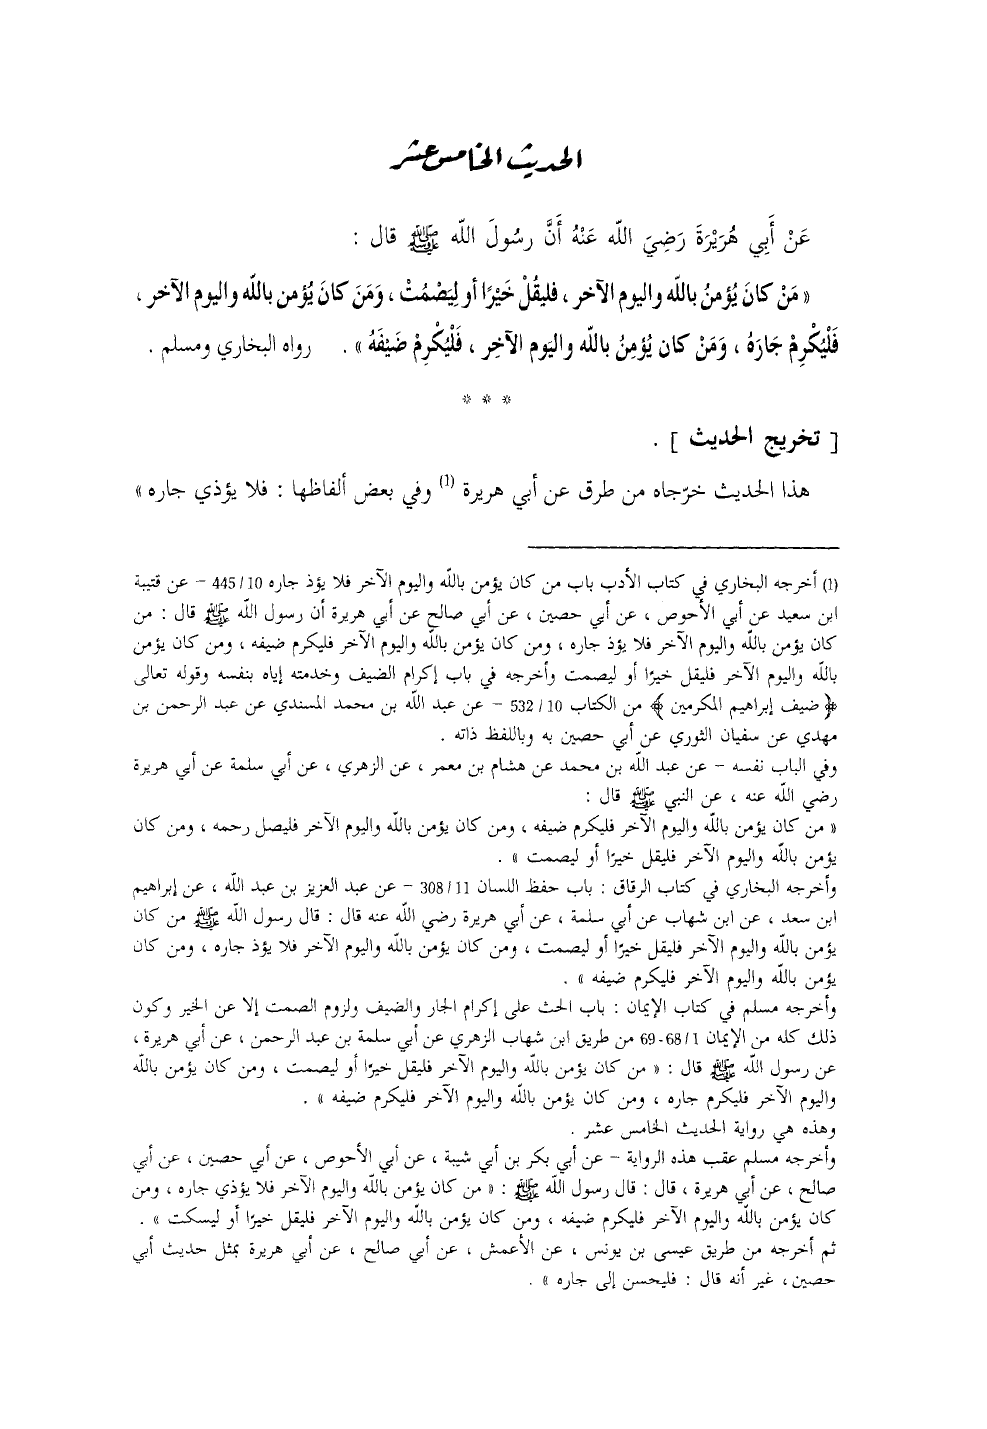 الحديث الخامس عشر
عَنْ أَبِي هُرَيْرَةَ رَضِيَ اللّه عَنْهُ أَنَّ رسُولَ اللّه ﷺ قال :
« مَنْ كانَ يُؤمنُ باللّه واليوم الآخر ، فليقُلْ خَيْرًا أو لِيَصْمُتْ ، وَمَنَ كانَ يُؤمن باللّه واليوم الآخر ،
فَلْيُكْرِمْ جَارَهُ ، وَمَنْ كان يُؤمِنُ باللّه واليَوم الآخِر ، فَلْيُكْرِمْ ضَيْفَهُ » . رواه البخاري ومسلم .
* * *
[ تخريج الحديث ] .
هذا الحديث خرّجاه من طرق عن أبي هريرة (1) وفي بعض ألفاظها : فلا يؤذي جاره »
(1) أخرجه البخاري في كتاب الأدب باب من كان يؤمن باللّه واليوم الآخر فلا يؤذ جاره 445/10 – عن قتيبة
ابن سعيد عن أبي الأحوص ، عن أبي حصين ، عن أبي صالح عن أبي هريرة أن رسول اللّه ﷺ قال : من
كان يؤمن باللّه واليوم الآخر فلا يؤذ جاره ، ومن كان يؤمن باللّه واليوم الآخر فليكرم ضيفه ، ومن كان يؤمن
باللّه واليوم الآخر فليقل خيرًا أو ليصمت وأخرجه في باب إكرام الضيف وخدمته إياه بنفسه وقوله تعالى
﴿ ضيف إبراهيم المكرمين ﴾ من الكتاب 532/10 – عن عبد اللّه بن محمد المسندي عن عبد الرحمن بن
مهدي عن سفيان الثوري عن أبي حصين به وباللفظ ذاته .
وفي الباب نفسه – عن عبد اللّه بن محمد عن هشام بن معمر ، عن الزهري ، عن أبي سلمة عن أبي هريرة
رضي اللّه عنه ، عن النبي ﷺ قال :
« من كان يؤمن باللّه واليوم الآخر فليكرم ضيفه ، ومن كان يؤمن باللّه واليوم الآخر فليصل رحمه ، ومن كان
يؤمن باللّه واليوم الآخر فليقل خيرًا أو ليصمت » .
وأخرجه البخاري في كتاب الرقاق : باب حفظ اللسان 308/11 – عن عبد العزيز بن عبد اللّه ، عن إبراهيم
ابن سعد ، عن ابن شهاب عن أبي سلمة ، عن أبي هريرة رضي اللّه عنه قال : قال رسول اللّه ﷺ من كان
يؤمن باللّه واليوم الآخر فليقل خيرًا أو ليصمت ، ومن كان يؤمن باللّه واليوم الآخر فلا يؤذ جاره ، ومن كان
يؤمن باللّه واليوم الآخر فليكرم ضيفه » .
وأخرجه مسلم في كتاب الإيمان : باب الحث على إكرام الجار والضيف ولزوم الصمت إلا عن الخير وكون
ذلك كله من الإيمان 68/1-69 من طريق ابن شهاب الزهري عن أبي سلمة بن عبد الرحمن ، عن أبي هريرة ،
عن رسول اللّه ﷺ قال : « من كان يؤمن باللّه واليوم الآخر فليقل خيرًا أو ليصمت ، ومن كان يؤمن باللّه
واليوم الآخر فليكرم جاره ، ومن كان يؤمن باللّه واليوم الآخر فليكرم ضيفه » .
وهذه هي رواية الحديث الخامس عشر .
وأخرجه مسلم عقب هذه الرواية – عن أبي بكر بن أبي شيبة ، عن أبي الأحوص ، عن أبي حصين ، عن أبي
صالح ، عن أبي هريرة ، قال : قال رسول اللّه ﷺ : « من كان يؤمن باللّه واليوم الآخر فلا يؤذي جاره ، ومن
كان يؤمن باللّه واليوم الآخر فليكرم ضيفه ، ومن كان يؤمن باللّه واليوم الآخر فليقل خيرًا أو ليسكت » .
ثم أخرجه من طريق عيسى بن يونس ، عن الأعمش ، عن أبي صالح ، عن أبي هريرة بمثل حديث أبي
حصين، غير أنه قال : فليحسن إلى جاره » .